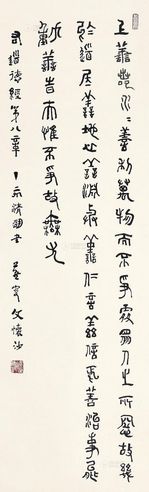 上善若水水善利萬物而不爭處眾人之所惡故幾
於道居善地心善淵與善仁言善信正善治事善能
動善時夫惟不爭故無尤
道德經第八章 丁亥清明 燕叟文懷沙